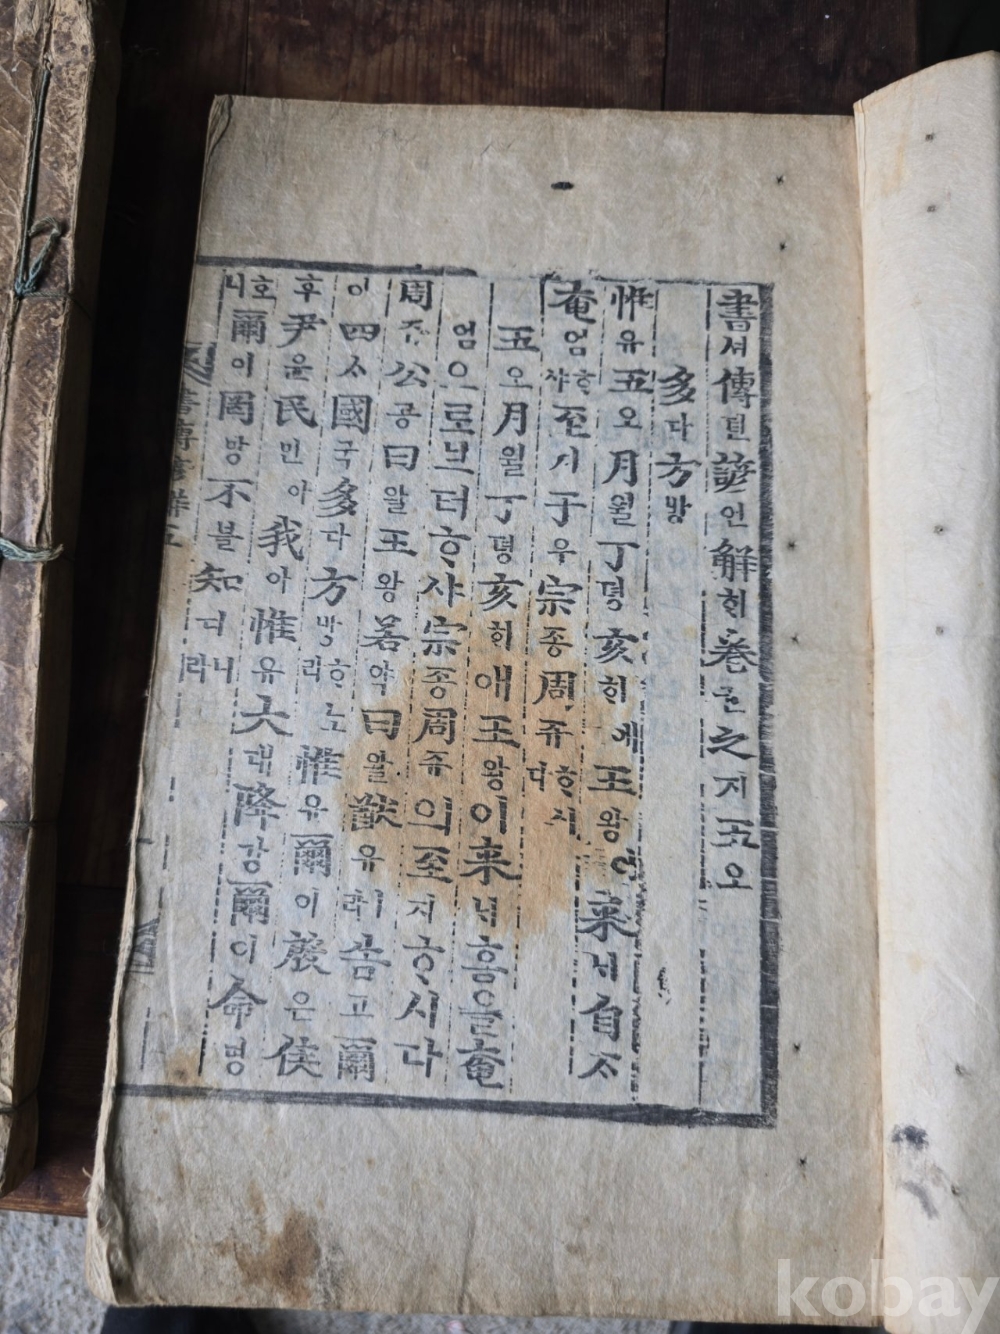 書셔傳뎐諺언解ᄒᆡ卷권之지五오
多다方방
惟유五오月월丁뎡亥ᄒᆡ예王왕이來ᄅᆡ自ᄌᆞ
奄엄ᄒᆞ샤至지于우宗종周쥬ᄒᆞ시다
五오月월丁뎡亥ᄒᆡ애王왕이來ᄅᆡ홈을奄
엄으로브터ᄒᆞ샤宗종周쥬의至지ᄒᆞ시다
周쥬公공曰왈王왕若약曰왈猷유ㅣ라誥고爾
이四ᄉᆞ國국多다方방ᄒᆞ노라惟유爾이殷은侯
후尹윤民민아我아惟유大대降강爾이命명
호니爾이罔망不블知디니라
書傳諺解五
kobay